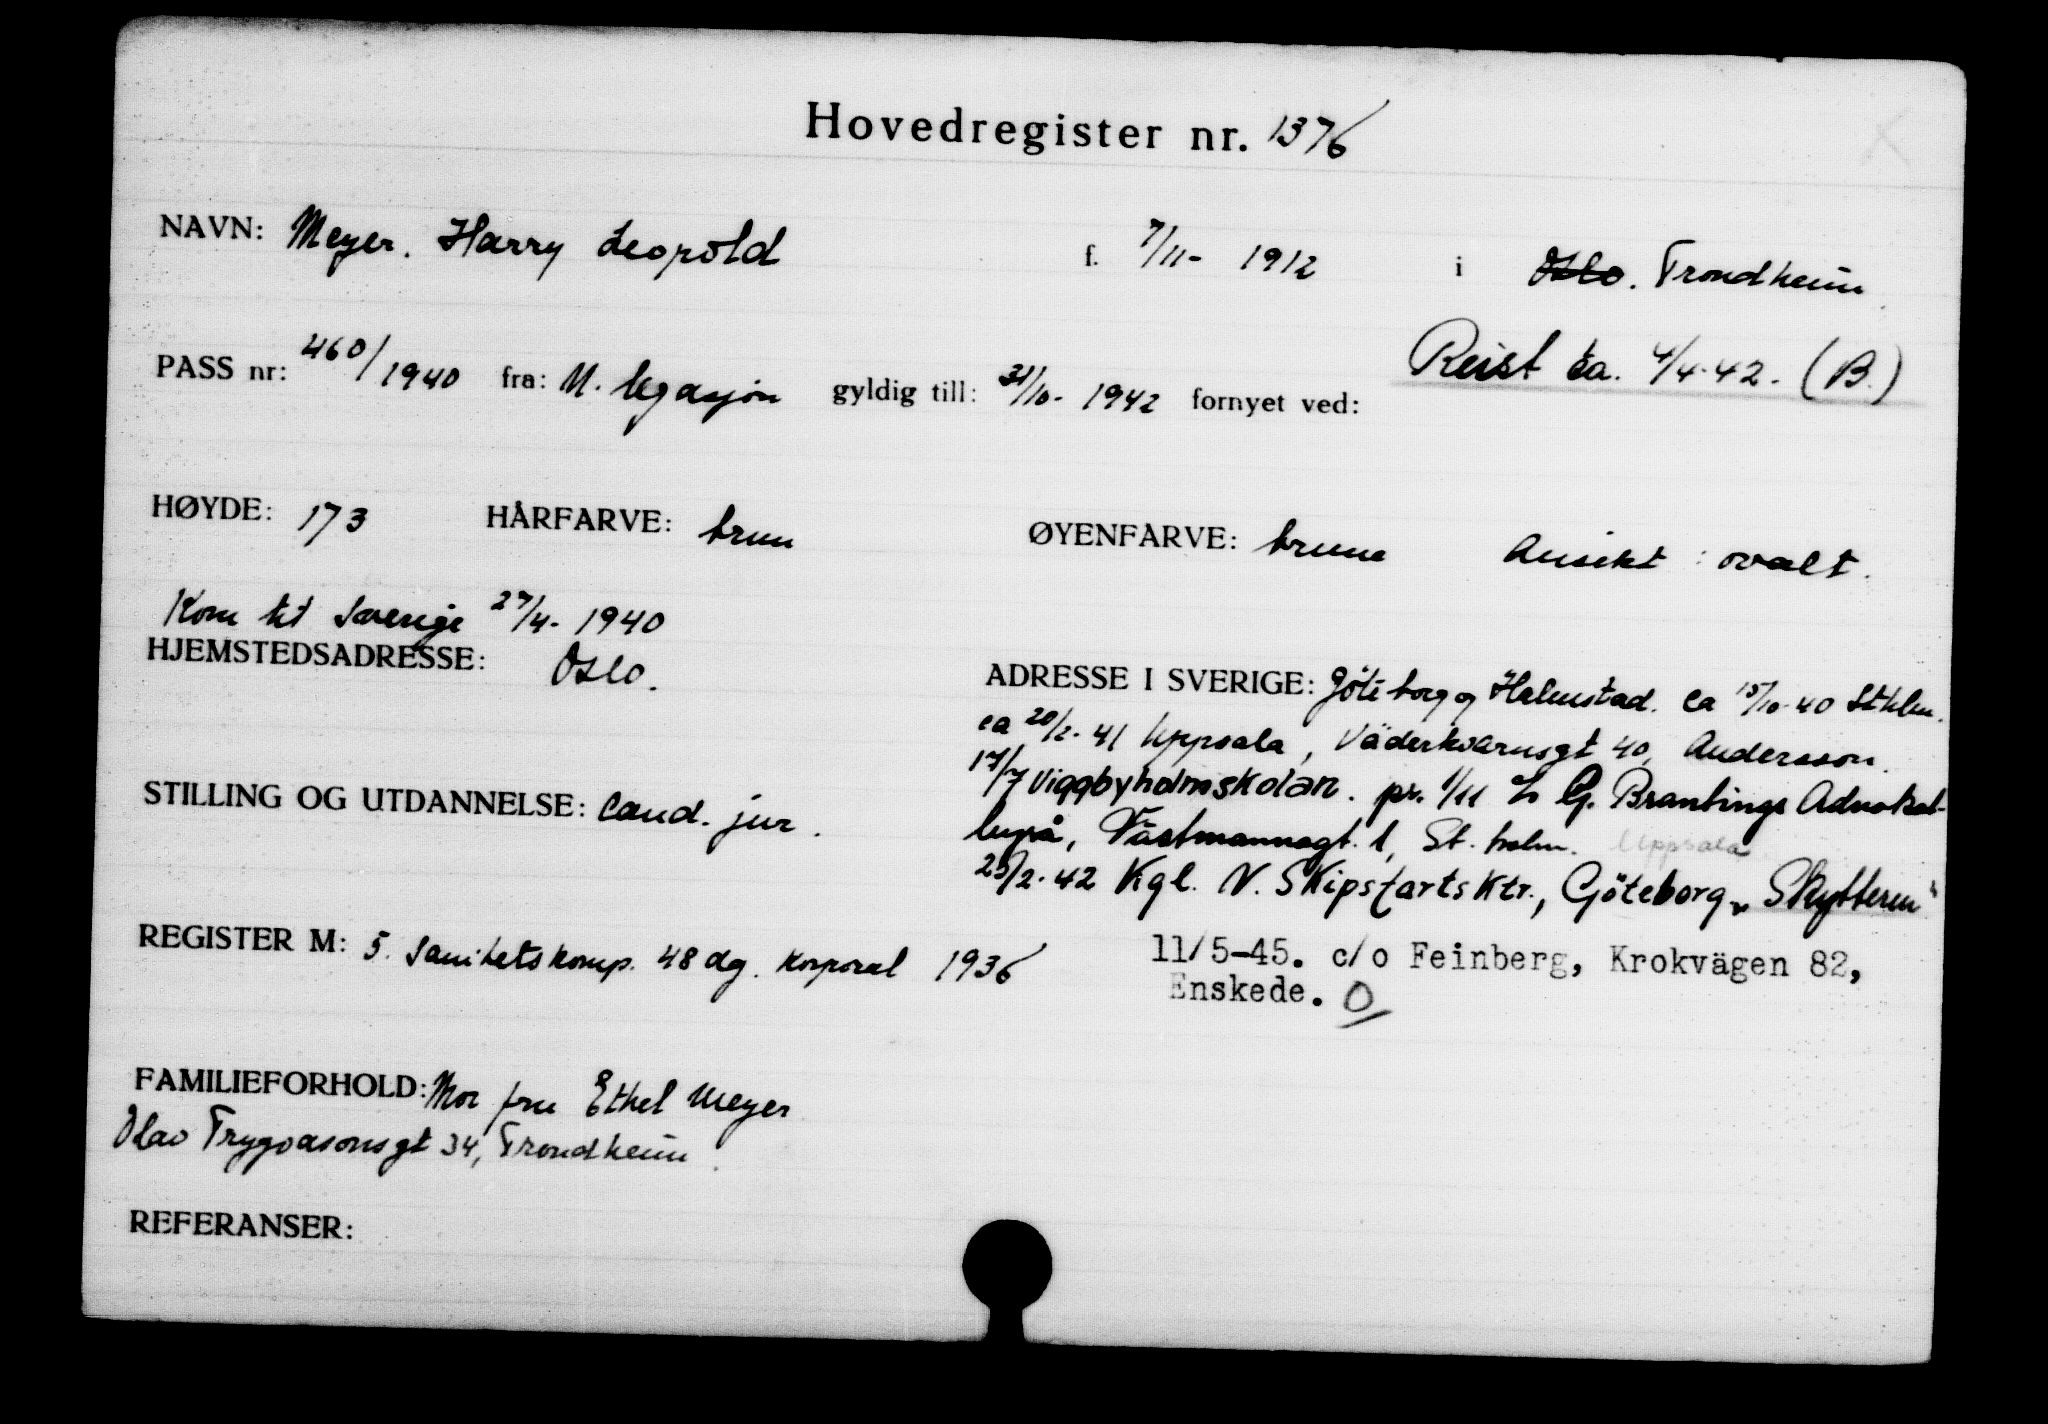 Hovedregister nr. 1376
NAVN: Meyer. Harry Leopold f. 7/11- 1912 i Oslo. Trondheim
Reist ca. 4/4-42. (B.)
PASS nr: 460/1940 fra: N. legasjon gyldig till: 31/10- 1942 fornyet ved:
HØYDE: 173 HÅRFARVE: brun ØYENFARVE: brune Ansikt: ovalt.
Kom til Sverige 27/4- 1940
HJEMSTEDSADRESSE: Oslo.
ADRESSE I SVERIGE: Göteborg og Halmstad. ca 15/10-40 Sthlm.
ca 20/2-41 Uppsala, Väderkvarnsgt 40, Andersson.
17/7 Viggbyholmskolan. pr. 1/11 G. Brantings Advokat-
byrå, Västmannagt. 1, St. holm. Uppsala
STILLING OG UTDANNELSE: Cand. jur.
25/2-42 Kgl. N. Skipsfartsktr., Göteborg, "Skytteren"
REGISTER M: 5. Sanitetskomp. 48 dg. Korporal 1936
11/5-45. c/o Feinberg, Krokvägen 82,
Enskede. O
FAMILIEFORHOLD: Mor fru Ethel Meyer
Olav Trygvasonsgt 34, Trondheim.
REFERANSER: